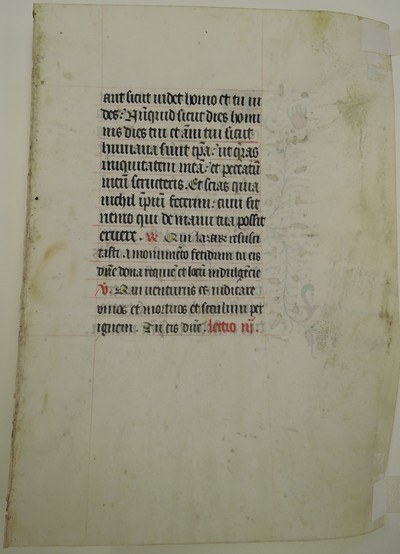 aut sicut uidet homo et tu ui
des: Nũquid sicut dies homi
nis dies tui et ãni tui sicut
humana sunt tp̃a: ut q̃ras
iniquitatem meã: et peccatũ
meũ scruteris. Et scias quia
nichil ĩpiũ fecerim: cum sit
nemo qui de manu tua possit
eruere. R̃. Qui lazarũ resusci
tasti a monumẽto fetidum tu eis
dñe dona requiẽ et locũ indulgẽcie
V̾. Qui uenturus es iudicare
uiuos et mortuos et seculum per
ignem. Tu eis dñe. lectio iij.